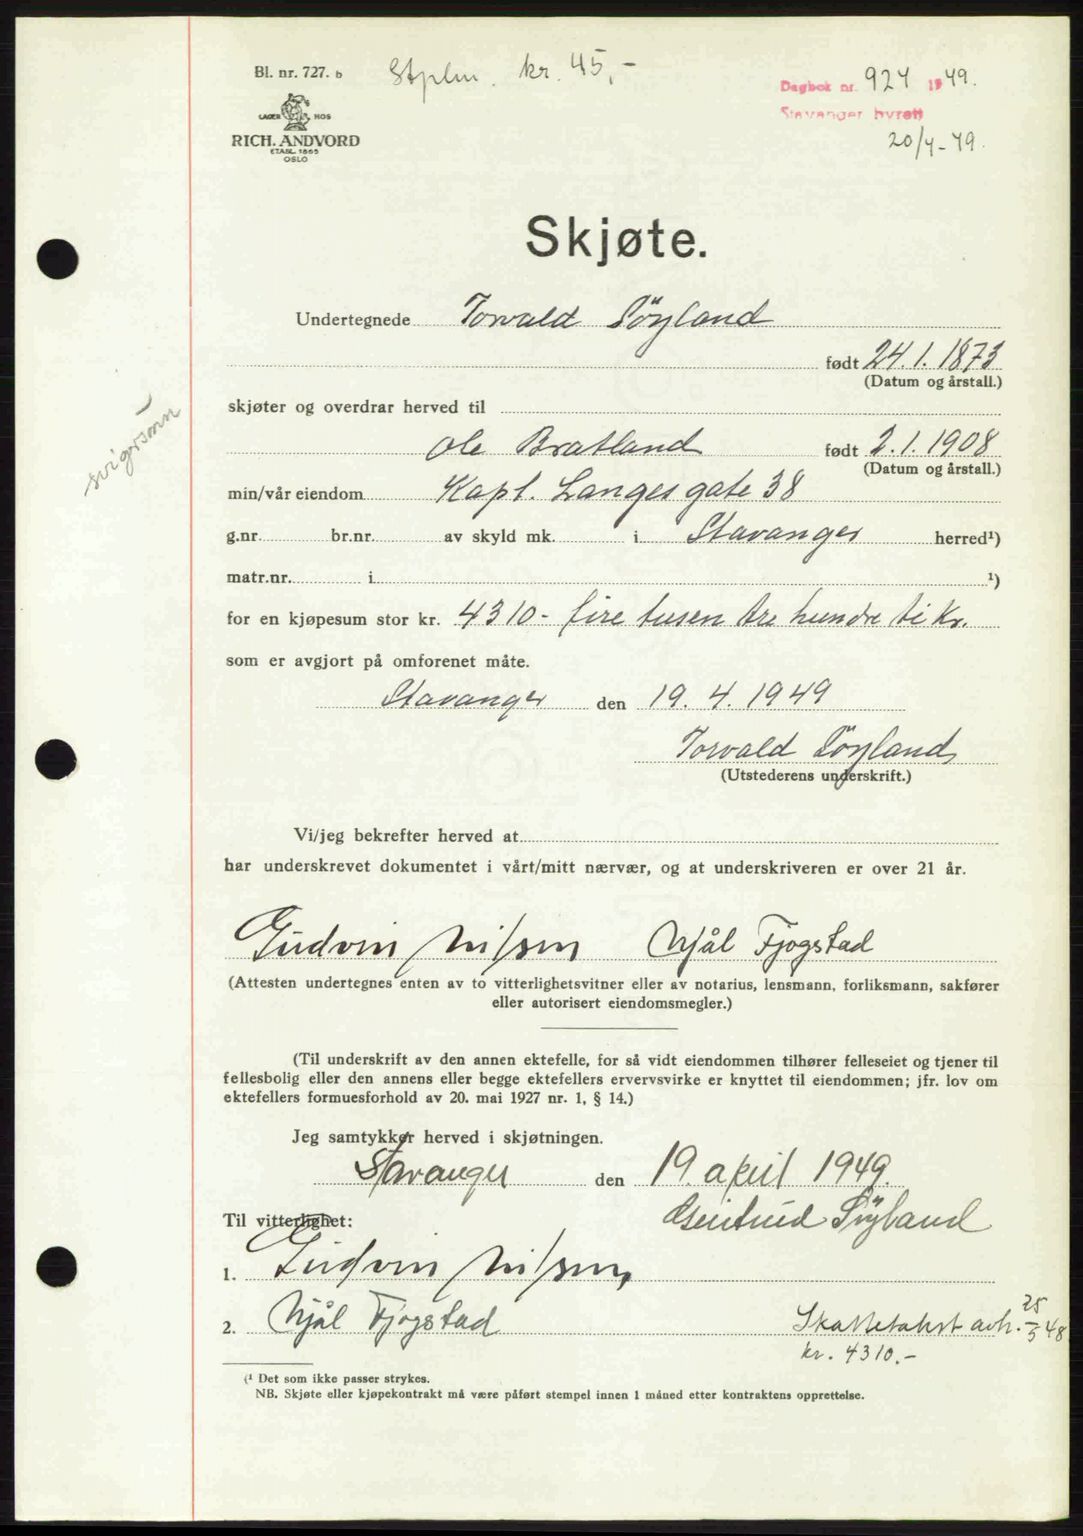 Bl. nr. 727. b
Stplm. kr. 45,-
Dagbok nr. 924 1949.
Stavanger byrett
20/4-49.
LAGER HOS
RICH. ANDVORD
ETABL. 1865
OSLO
Skjøte.
Undertegnede Torvald Söyland
født 24.1.1873
(Datum og årstall.)
skjøter og overdrar herved til
svigersønn
Ole Bratland født 2.1.1908
(Datum og årstall.)
min/vår eiendom Kapt. Langes gate 38
g.nr. br.nr. av skyld mk. i Stavanger herred¹)
matr.nr. i ¹)
for en kjøpesum stor kr. 4310- fire tusen tre hundre ti Kr.
som er avgjort på omforenet måte.
Stavanger den 19. 4. 1949
Torvald Söyland
(Utstederens underskrift.)
Vi/jeg bekrefter herved at
har underskrevet dokumentet i vårt/mitt nærvær, og at underskriveren er over 21 år.
Gudvin Nilsen Njål Fjogstad
(Attesten undertegnes enten av to vitterlighetsvitner eller av notarius, lensmann, forliksmann, sakfører
eller autorisert eiendomsmegler.)
(Til underskrift av den annen ektefelle, for så vidt eiendommen tilhører felleseiet og tjener til
fellesbolig eller den annens eller begge ektefellers ervervsvirke er knyttet til eiendommen; jfr. lov om
ektefellers formuesforhold av 20. mai 1927 nr. 1, § 14.)
Jeg samtykker herved i skjøtningen.
Stavanger den 19. april 1949.
Til vitterlighet: Gertrud Söyland
1. Gudvin Nilsen
2. Njål Fjogstad
Skattetakst avh. 25/5 48
kr. 4310.-
(¹ Det som ikke passer strykes.
NB. Skjøte eller kjøpekontrakt må være påført stempel innen 1 måned etter kontraktens opprettelse.